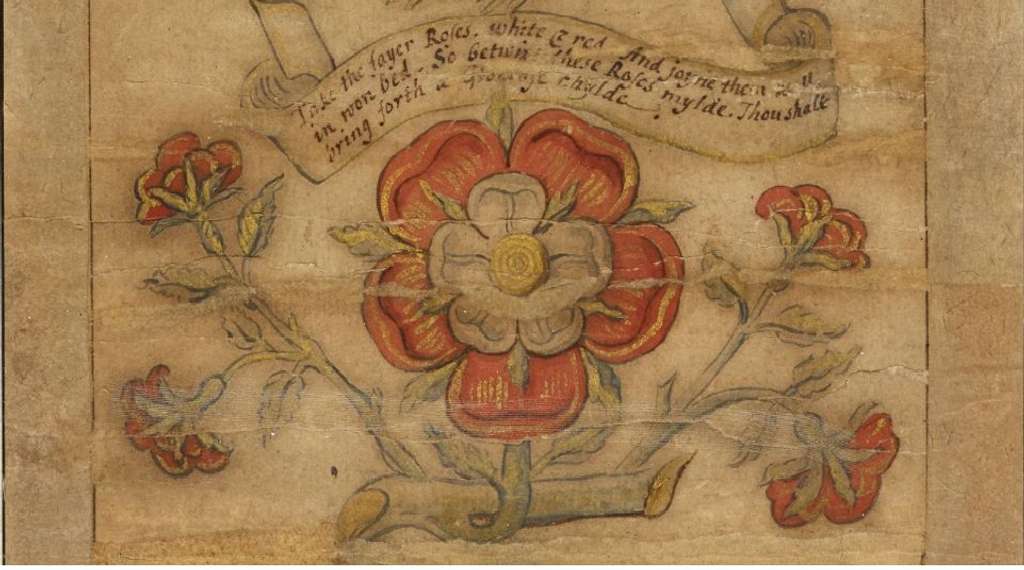 Take the fayer Roses. white & red And joyne them
in won bed. So betwixt these Roses mylde. Thou shalt
bring forth a chylde